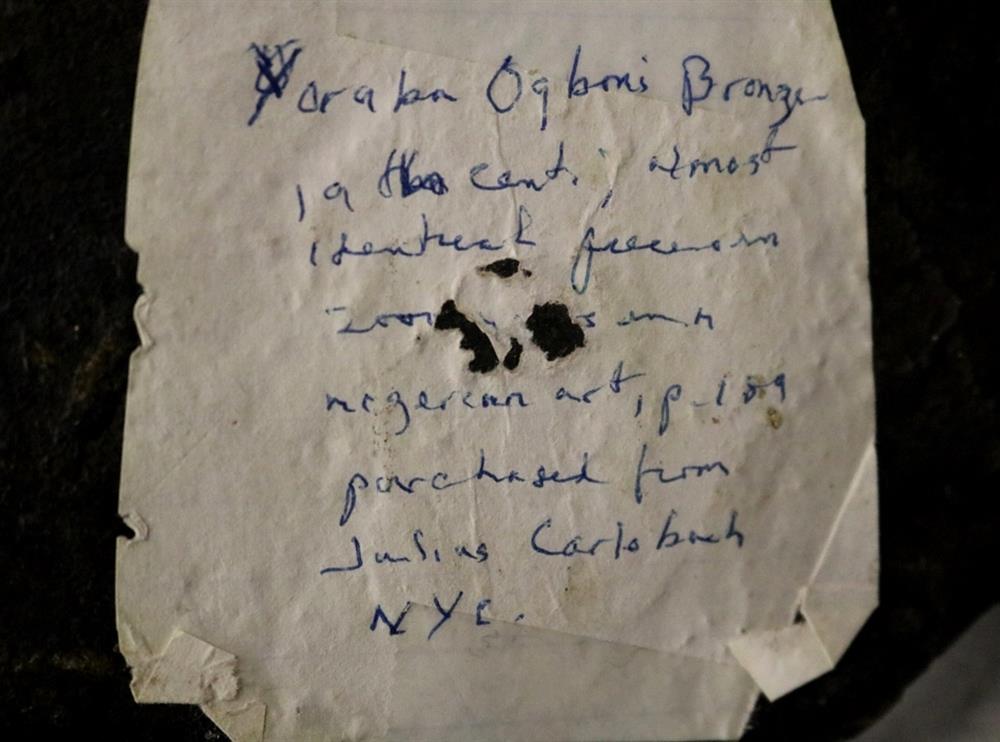 Yoraba Ogboni Bronze
19 th cent.; almost
identical piece in
2001
nigerian art, p. 189
purchased from
Julius Carlebach
NYC.